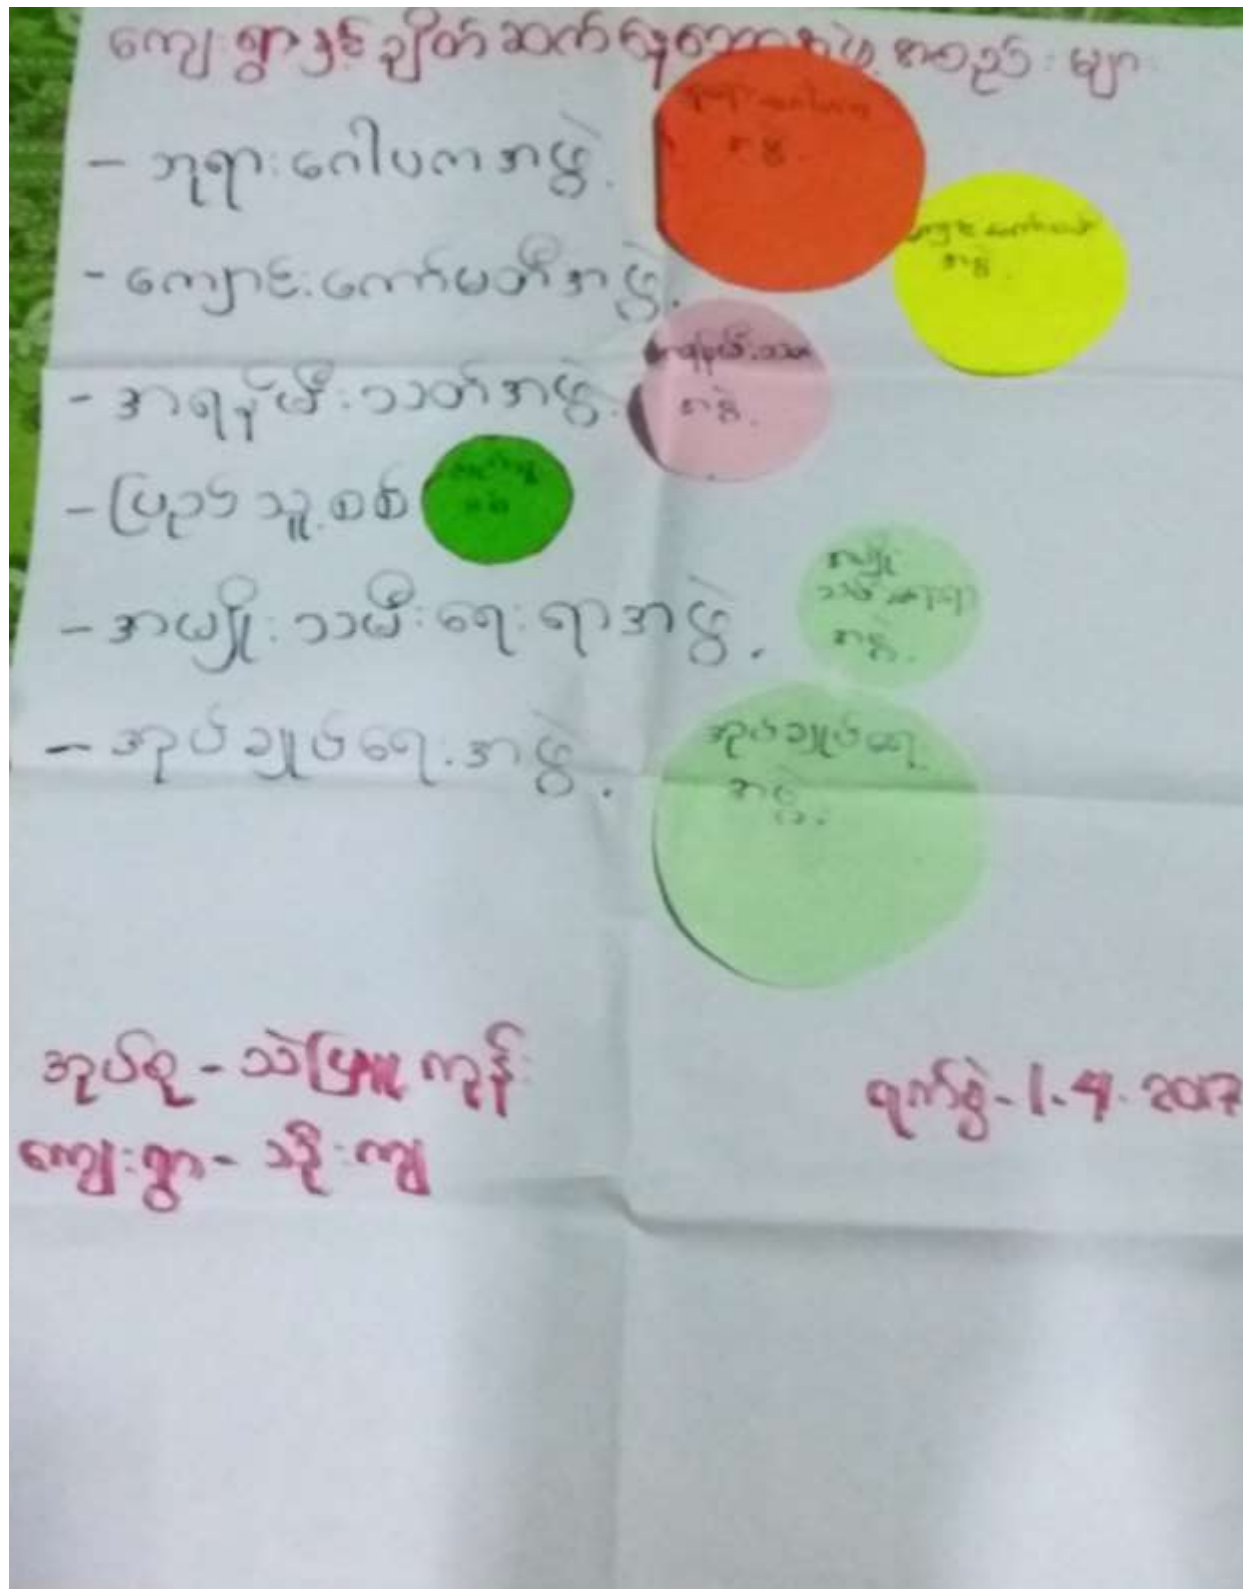 ကျေးရွာနှင့် ချိတ်ဆက်နေသော အဖွဲ့အစည်းများ
- ဘုရားဂေါပကအဖွဲ့.
- ကျောင်းကော်မတီအဖွဲ့.
- အရန်မီးသတ်အဖွဲ့.
- ပြည်သူ့စစ်
- အမျိုးသမီးရေးရာအဖွဲ့.
- အုပ်ချုပ်ရေးအဖွဲ့.
အဖွဲ့.
အဖွဲ့.
အရန်မီးသတ်
အဖွဲ့.
အမျိုး
သမီးရေးရာ
အဖွဲ့.
အုပ်ချုပ်ရေး
အဖွဲ့.
အုပ်စု - သဲဖြူကုန်း
ကျေးရွာ - သရိုးကျ
ရက်စွဲ - 1.4.2017